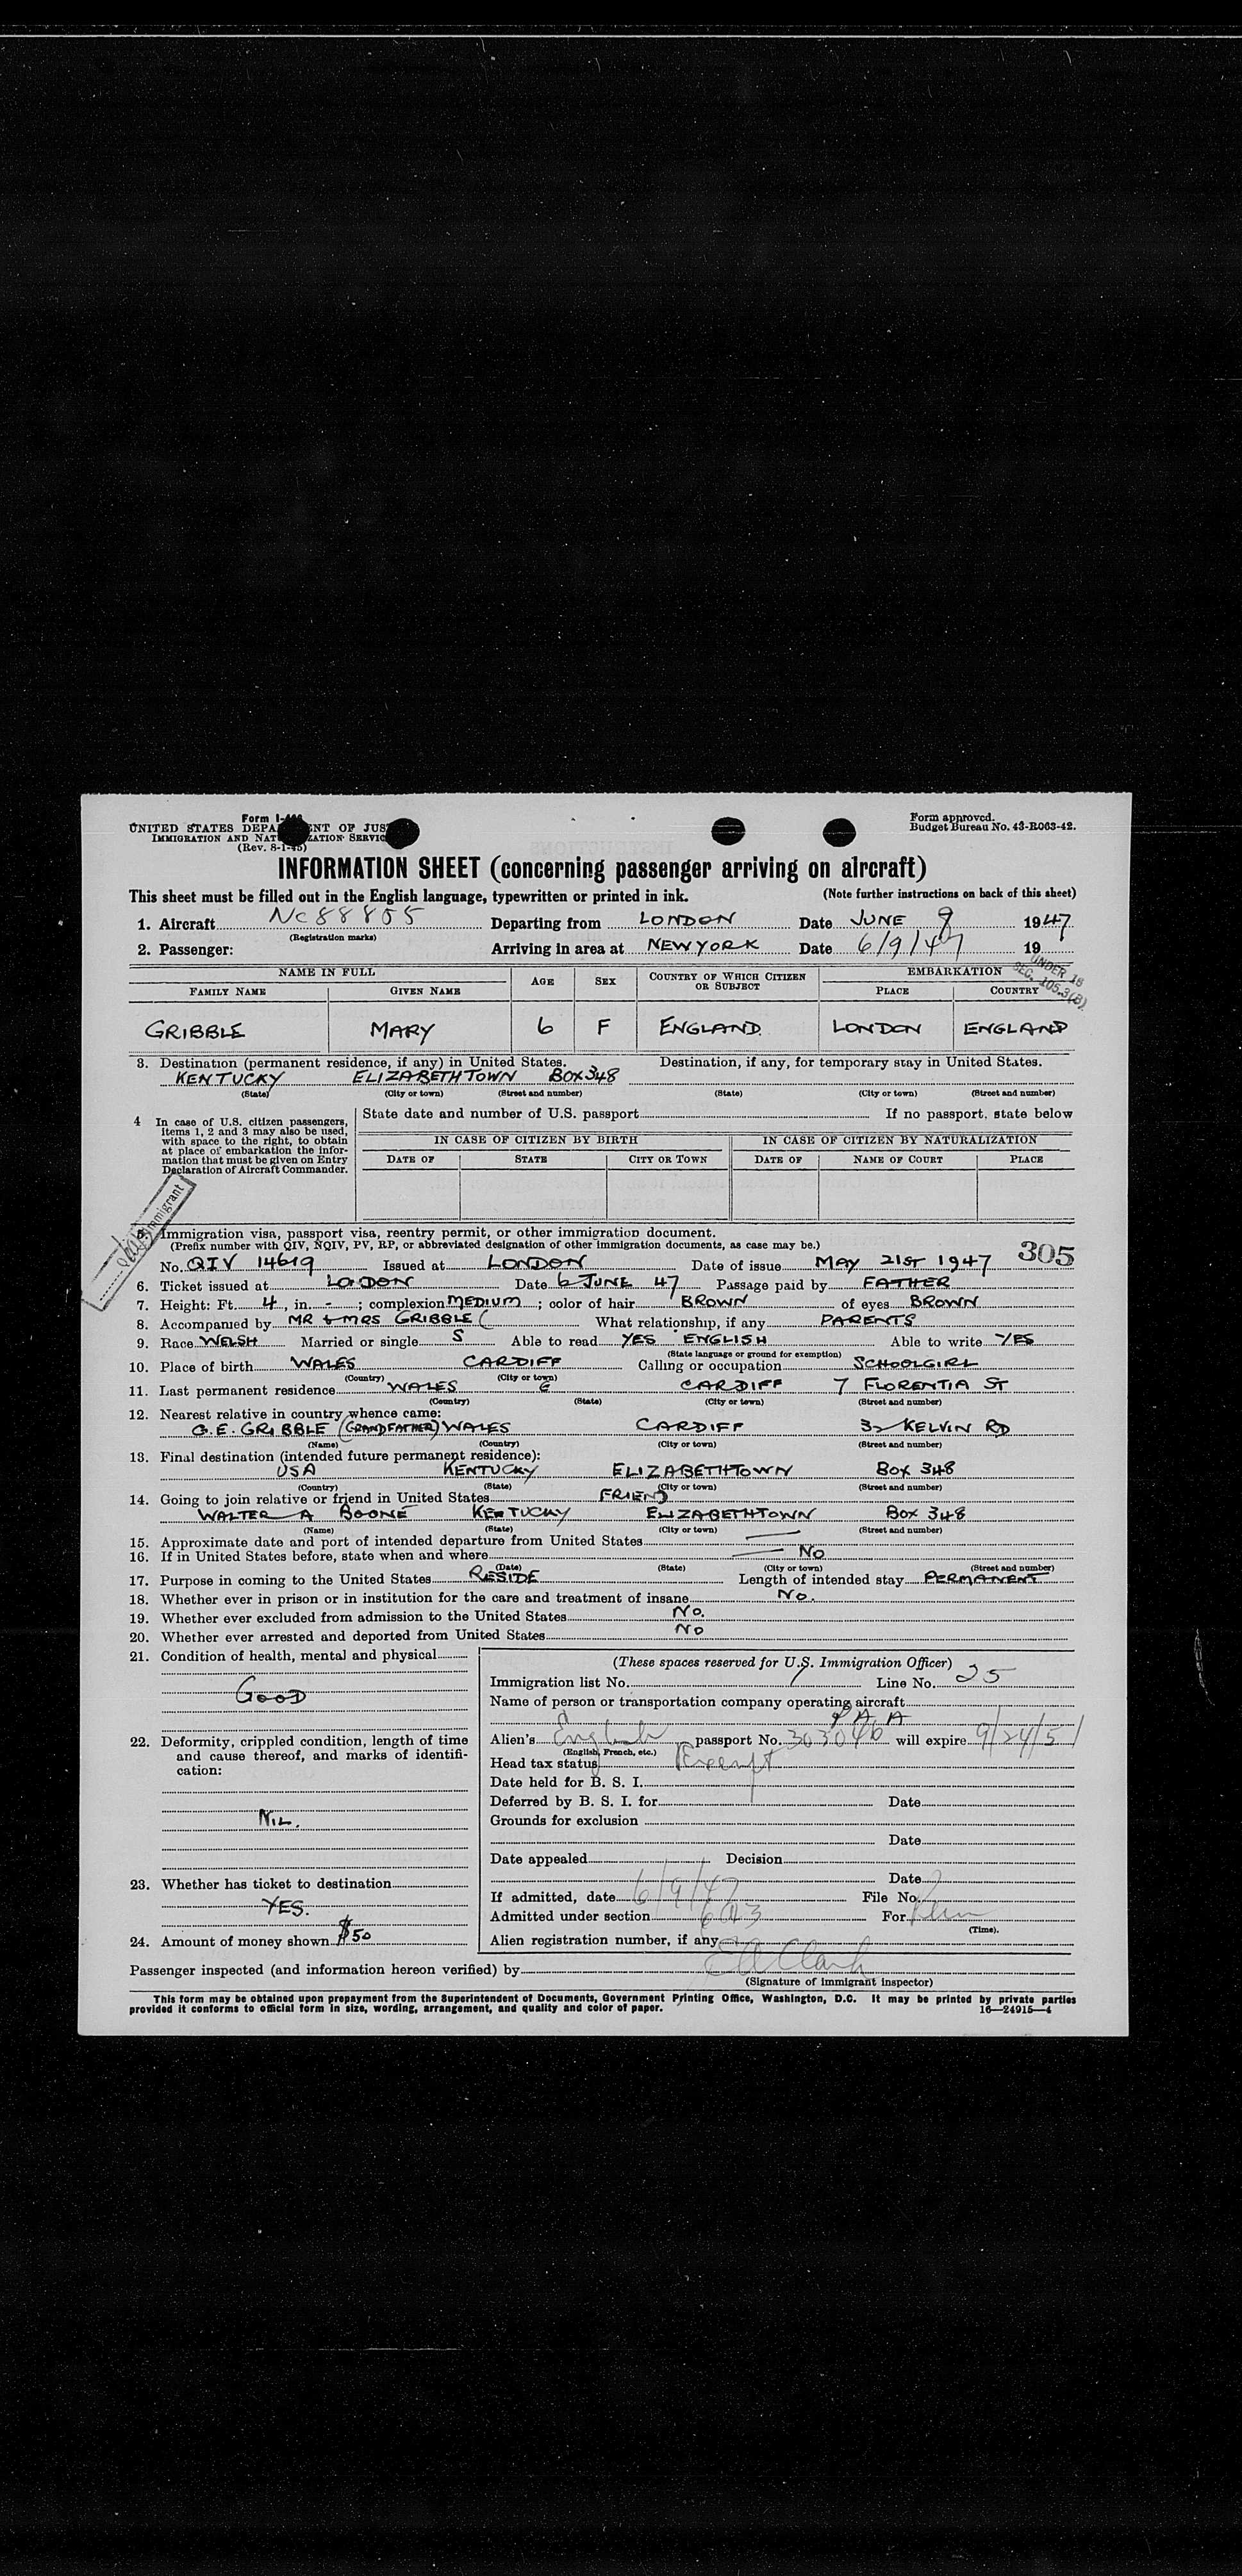 Form I-
UNITED STATES DEPA NT OF JUS
IMMIGRATION AND NAT ZATION SERVIC
(Rev. 8-1-45)
Form approved.
Budget Bureau No. 43-R063-42.
INFORMATION SHEET (concerning passenger arriving on aircraft)
This sheet must be filled out in the English language, typewritten or printed in ink. (Note further instructions on back of this sheet)
1. Aircraft NC 88855 Departing from LONDON Date JUNE 9 1947
(Registration marks)
2. Passenger: Arriving in area at NEW YORK Date 6/9/47 19
UNDER 16
SEC. 105.3(B)
NAME IN FULL AGE SEX COUNTRY OF WHICH CITIZEN OR SUBJECT EMBARKATION
FAMILY NAME GIVEN NAME PLACE COUNTRY
GRIBBLE MARY 6 F ENGLAND. LONDON ENGLAND
3. Destination (permanent residence, if any) in United States. Destination, if any, for temporary stay in United States.
KENTUCKY ELIZABETHTOWN BOX 348
(State) (City or town) (Street and number) (State) (City or town) (Street and number)
4 In case of U.S. citizen passengers, items 1, 2 and 3 may also be used, with space to the right, to obtain at place of embarkation the information that must be given on Entry Declaration of Aircraft Commander.
State date and number of U.S. passport If no passport, state below
IN CASE OF CITIZEN BY BIRTH IN CASE OF CITIZEN BY NATURALIZATION
DATE OF STATE CITY OR TOWN DATE OF NAME OF COURT PLACE
Immigrant
Immigration visa, passport visa, reentry permit, or other immigration document.
(Prefix number with QIV, NQIV, PV, RP, or abbreviated designation of other immigration documents, as case may be.)
305
No. QIV 14619 Issued at LONDON Date of issue MAY 21ST 1947
6. Ticket issued at LONDON Date 6 JUNE 47 Passage paid by FATHER
7. Height: Ft. 4, in. -; complexion MEDIUM; color of hair BROWN of eyes BROWN
8. Accompanied by MR & MRS GRIBBLE ( What relationship, if any PARENTS
9. Race WELSH Married or single S Able to read YES ENGLISH Able to write YES
(State language or ground for exemption)
10. Place of birth WALES CARDIFF Calling or occupation SCHOOLGIRL
(Country) (City or town)
11. Last permanent residence WALES CARDIFF 7 FLORENTIA ST
(Country) (State) (City or town) (Street and number)
12. Nearest relative in country whence came:
G.E. GRIBBLE (GRANDFATHER) WALES CARDIFF 32 KELVIN RD
(Name) (Country) (City or town) (Street and number)
13. Final destination (intended future permanent residence):
USA KENTUCKY ELIZABETHTOWN BOX 348
(Country) (State) (City or town) (Street and number)
14. Going to join relative or friend in United States FRIEND
WALTER A BOONE KENTUCKY ELIZABETHTOWN BOX 348
(Name) (State) (City or town) (Street and number)
15. Approximate date and port of intended departure from United States —
16. If in United States before, state when and where — NO
(Date) (State) (City or town) (Street and number)
17. Purpose in coming to the United States RESIDE Length of intended stay PERMANENT
18. Whether ever in prison or in institution for the care and treatment of insane NO.
19. Whether ever excluded from admission to the United States NO.
20. Whether ever arrested and deported from United States NO
21. Condition of health, mental and physical
GOOD
22. Deformity, crippled condition, length of time and cause thereof, and marks of identification:
NIL.
23. Whether has ticket to destination
YES.
24. Amount of money shown $50
(These spaces reserved for U.S. Immigration Officer)
Immigration list No. Line No. 25
Name of person or transportation company operating aircraft
P A A
Alien's English passport No. 303046 will expire 9/24/51
(English, French, etc.)
Head tax status Exempt
Date held for B. S. I.
Deferred by B. S. I. for Date
Grounds for exclusion
Date
Date appealed Decision
Date
If admitted, date 6/9/47 File No.
Admitted under section For
(Time).
Alien registration number, if any
Passenger inspected (and information hereon verified) by E A Clark
(Signature of immigrant inspector)
This form may be obtained upon prepayment from the Superintendent of Documents, Government Printing Office, Washington, D.C. It may be printed by private parties
provided it conforms to official form in size, wording, arrangement, and quality and color of paper. 16—24915—4